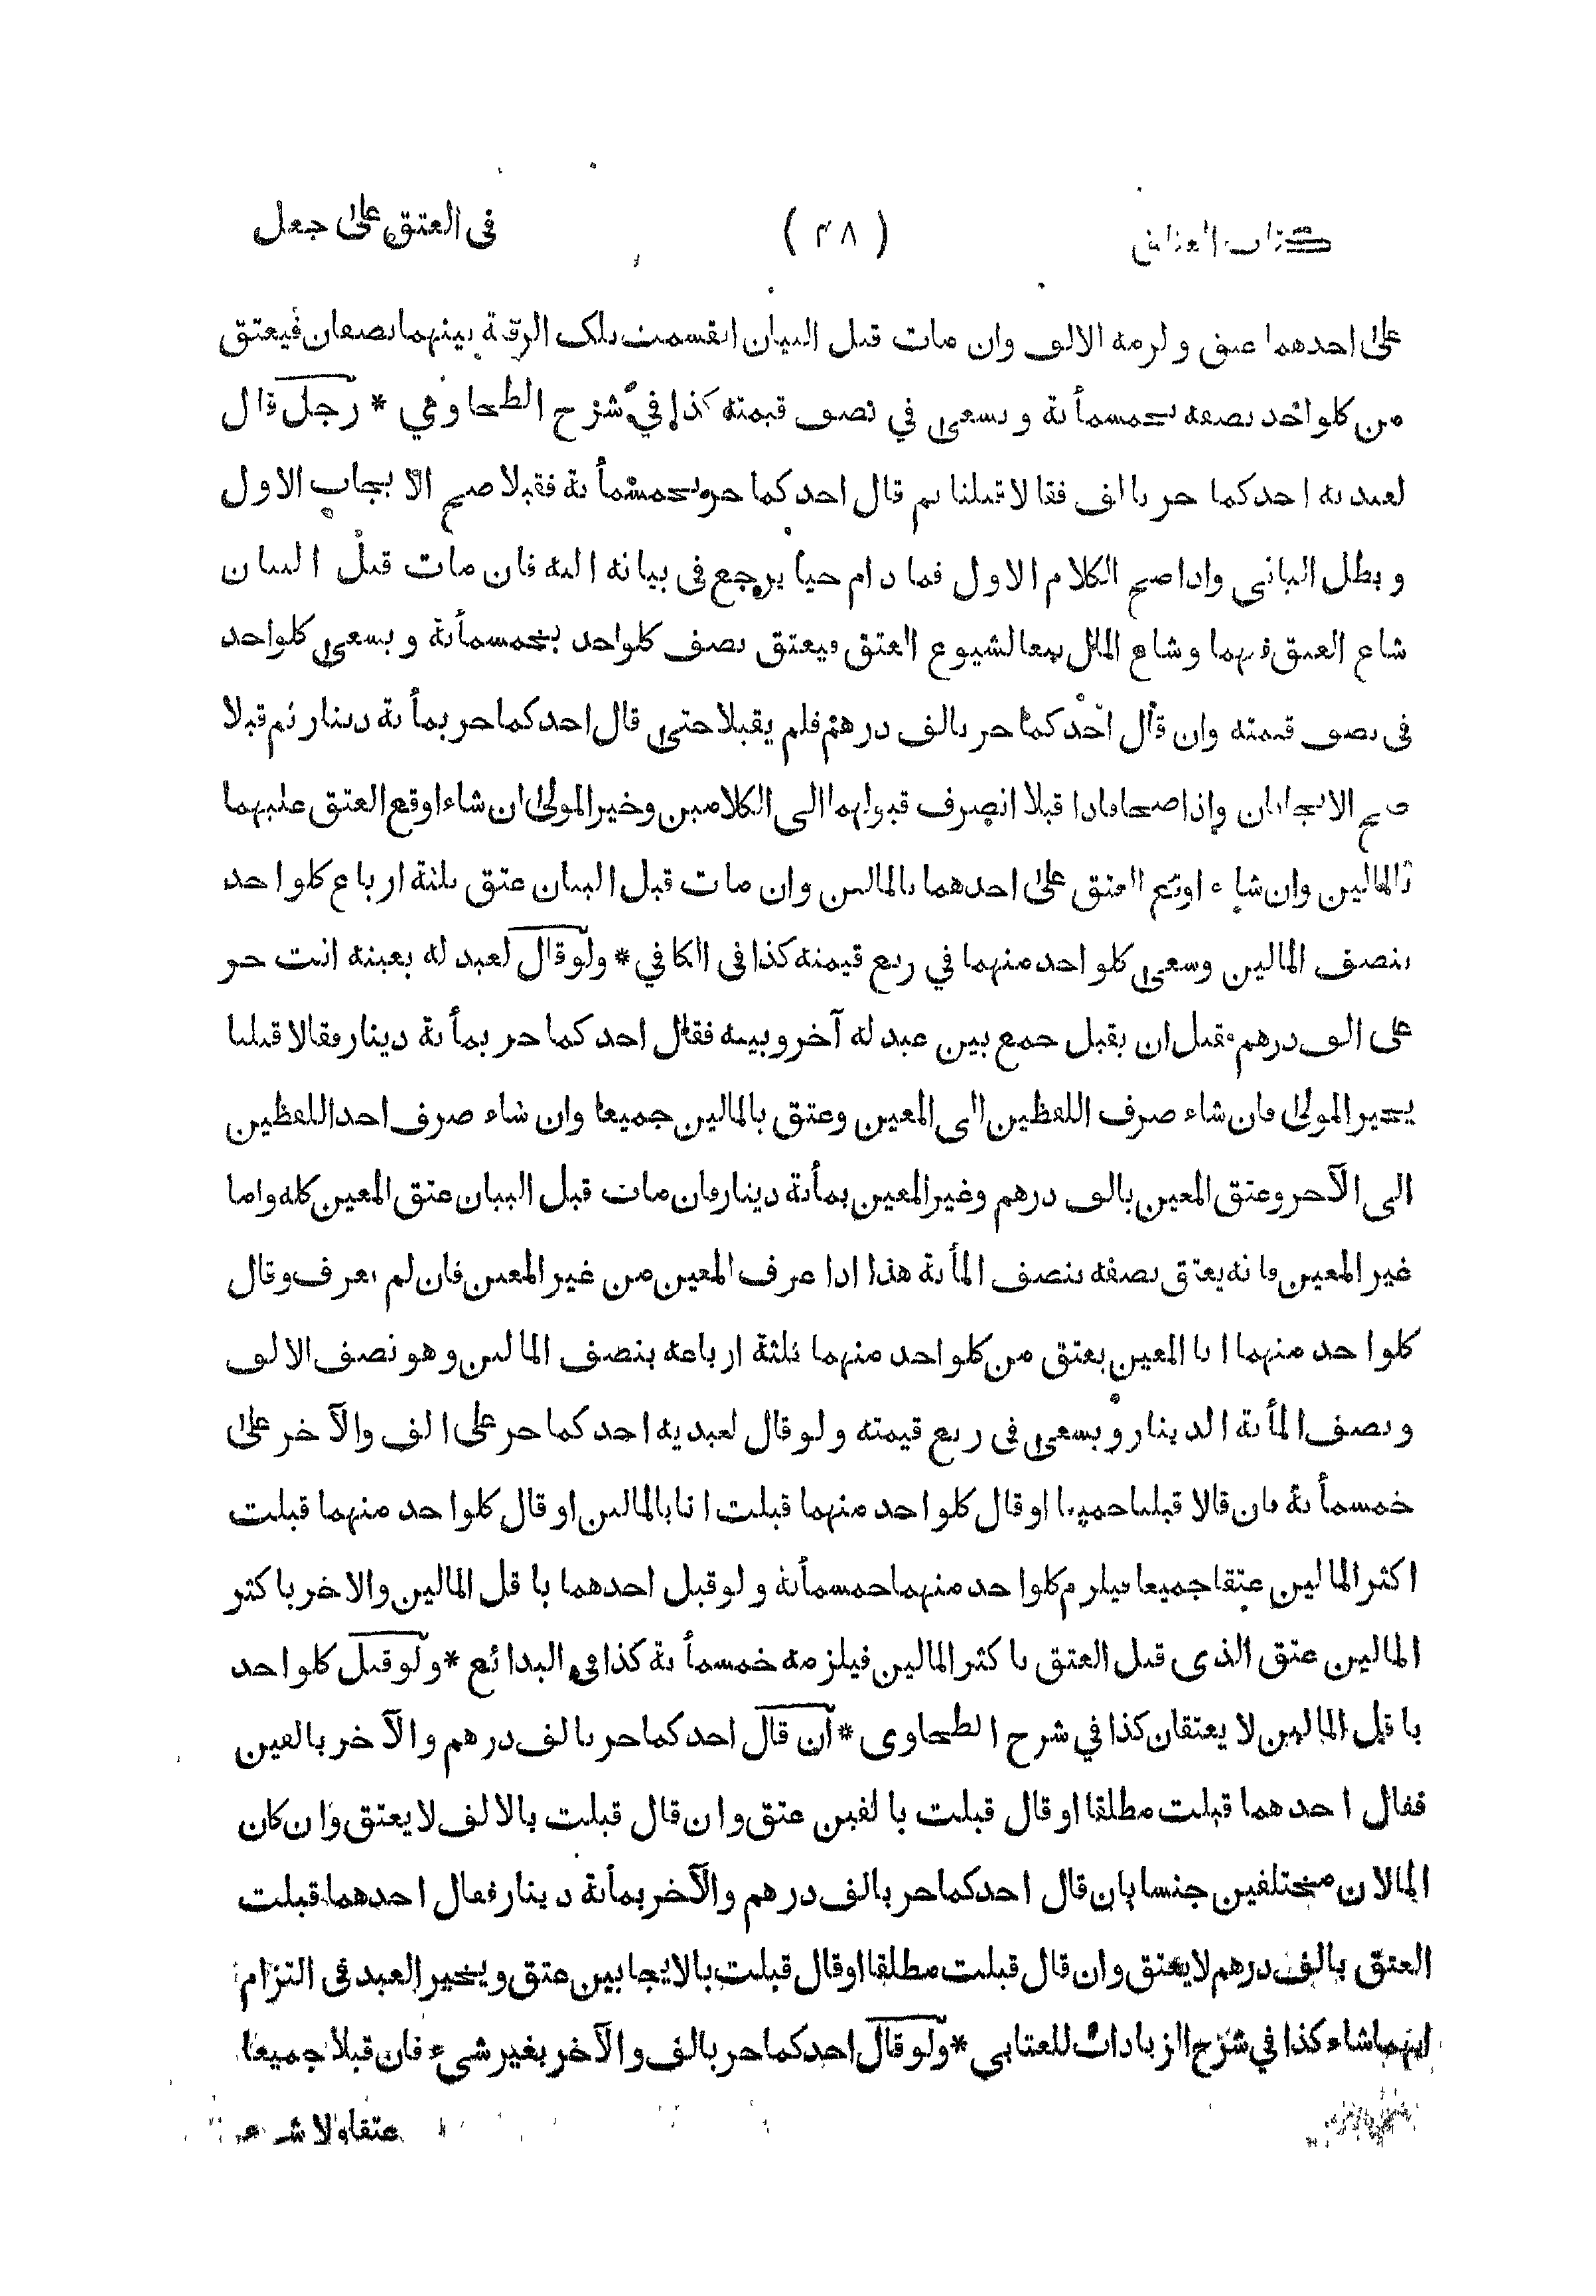 كتاب العتاق (٢٨) فى العتق على جعل
على احدهما عتق ولزمه الالف وان مات قبل البيان انقسمت تلك الرقبة بينهما نصفان فيعتق
من كلواحد نصفه بخمسمأئة ويسعى في نصف قيمته كذا في شرح الطحاوي * رجل قال
لعبديه احدكما حر بالف فقالا قبلنا ثم قال احدكما حر بخمسمأئة فقبلا صح الايجاب الاول
وبطل الثانى واذا صح الكلام الاول فما دام حيا يرجع فى بيانه اليه فان مات قبل البيان
شاع العتق فيهما وشاع المال تبعا لشيوع العتق فيعتق نصف كلواحد بخمسمأئة ويسعى كلواحد
فى نصف قيمته وان قال احدكما حر بالف درهم فلم يقبلا حتى قال احدكما حر بمأئة دينار ثم قبلا
صح الايجابان واذا صحا فاذا قبلا انصرف قبولهما الى الكلامين وخير المولى ان شاء اوقع العتق عليهما
بالمالين وان شاء اوقع العتق على احدهما بالمالين وان مات قبل البيان عتق ثلثة ارباع كلواحد
بنصف المالين وسعى كلواحد منهما في ربع قيمته كذا فى الكافي * ولو قال لعبد له بعينه انت حر
على الف درهم فقبل ان يقبل جمع بين عبد له آخر وبينه فقال احدكما حر بمأئة دينار فقالا قبلنا
يخير المولى فان شاء صرف اللفظين الى المعين وعتق بالمالين جميعا وان شاء صرف احد اللفظين
الى الآخر وعتق المعين بالف درهم وغير المعين بمأئة دينار فان مات قبل البيان عتق المعين كله واما
غير المعين فانه يعتق نصفه بنصف المأئة هذا اذا عرف المعين من غير المعين فان لم يعرف وقال
كلواحد منهما انا المعين يعتق من كلواحد منهما ثلثة ارباعه بنصف المالين وهو نصف الالف
ونصف المأئة الدينار ويسعى فى ربع قيمته ولو قال لعبديه احدكما حر على الف والآخر على
خمسمأئة فان قالا قبلنا جميعا او قال كلواحد منهما قبلت انا بالمالين او قال كلواحد منهما قبلت
اكثر المالين عتقا جميعا فيلزم كلواحد منهما خمسمأئة ولو قبل احدهما باقل المالين والاخر باكثر
المالين عتق الذى قبل العتق باكثر المالين فيلزمه خمسمأئة كذا في البدائع * ولو قبل كلواحد
باقل المالين لا يعتقان كذا في شرح الطحاوى * ان قال احدكما حر بالف درهم والآخر بالفين
فقال احدهما قبلت مطلقا او قال قبلت بالفين عتق وان قال قبلت بالالف لا يعتق وان كان
المالان مختلفين جنسا بان قال احدكما حر بالف درهم والآخر بمأئة دينار فقال احدهما قبلت
العتق بالف درهم لا يعتق وان قال قبلت مطلقا او قال قبلت بالايجابين عتق ويخير العبد فى التزام
ايهما شاء كذا في شرح الزيادات للعتابى * ولو قال احدكما حر بالف والآخر بغير شىء فان قبلا جميعا
عتقا ولا شىء